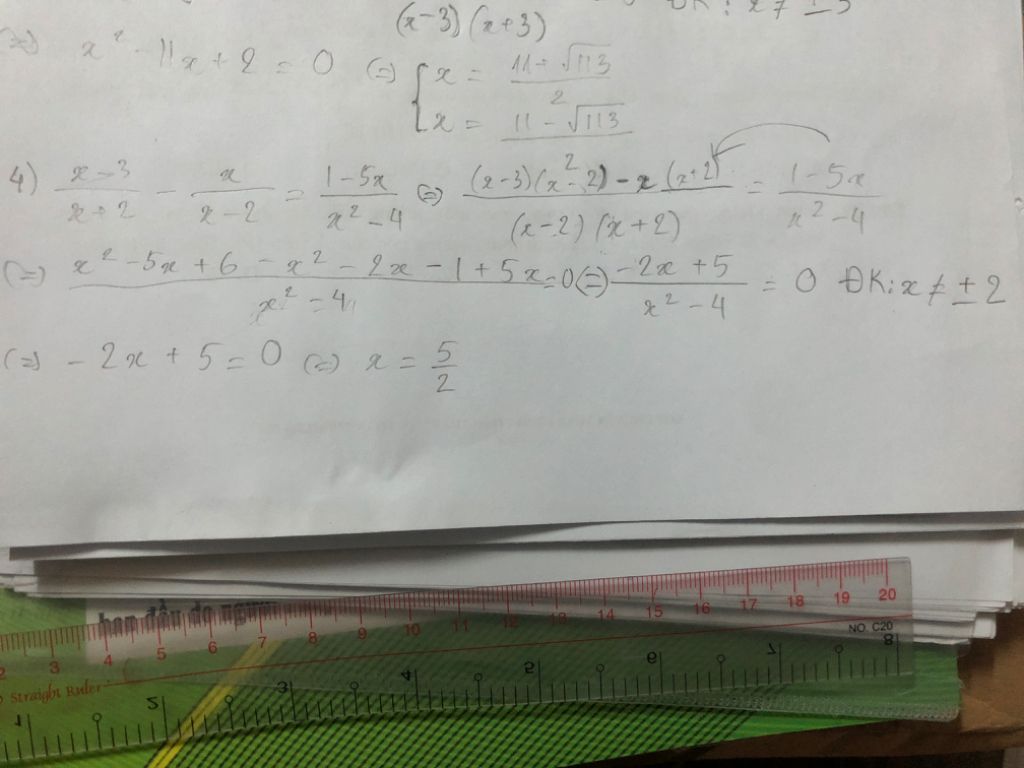 (x-3)(x+3)
ĐK: x ≠ ±3
(=) x² - 11x + 2 = 0 (=) [ x = (11+√113)/2
x = (11-√113)
4) (x-3)/(x+2) - x/(x-2) = (1-5x)/(x²-4) (=) ((x-3)(x-2)-x(x+2))/((x-2)(x+2)) = (1-5x)/(x²-4)
(=) (x²-5x+6-x²-2x-1+5x)/(x²=4) = 0 (=) (-2x+5)/(x²-4) = 0 ĐK: x ≠ ±2
(=) -2x + 5 = 0 (=) x = 5/2
2 3 4 5 6 7 8 9 10 11 12 13 14 15 16 17 18 19 20
NO. C20
Straight Ruler
1 2 3 4 5 6 7 8